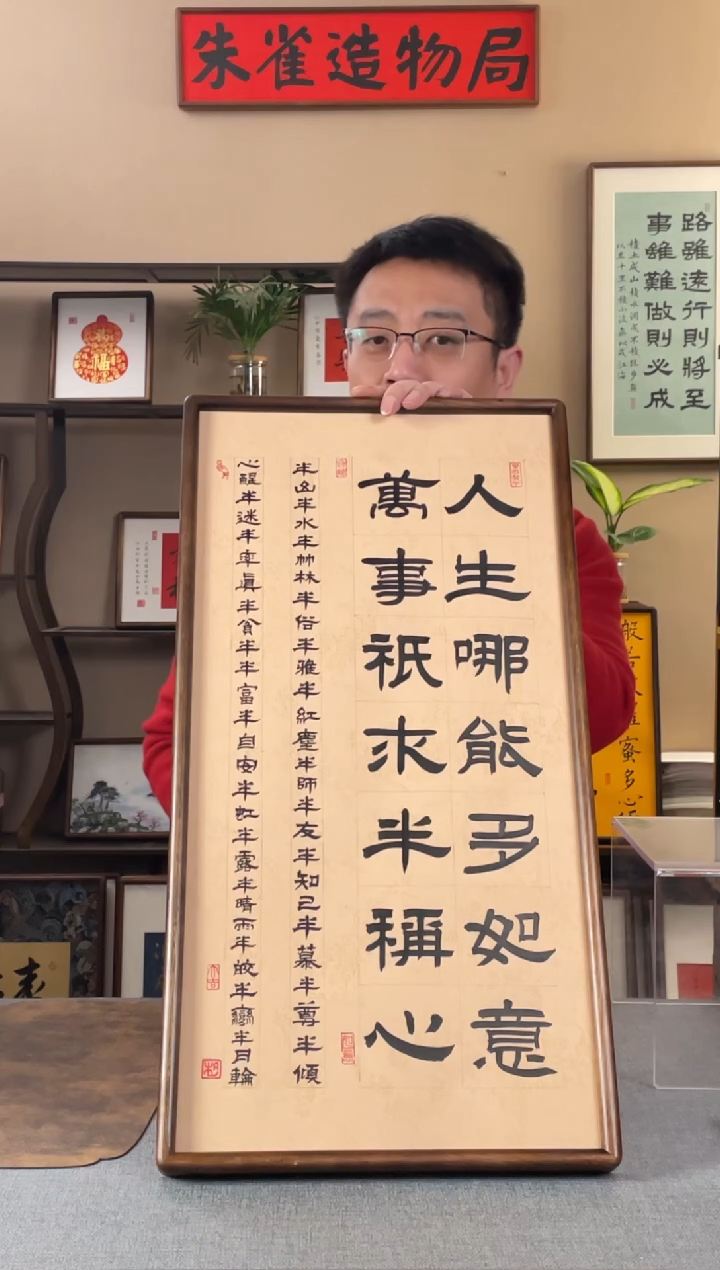 朱雀造物局
路雖遠行則將至
事雖難做則必成
福
人生哪能多如意
萬事祇求半稱心
半山半水半竹林半俗半雅半紅塵半師半友半知己半慕半尊半傾
心醒半迷半率真半貪半半富半自安半虹半露半晴雨半皎半彎半月輪
般若羅蜜多心